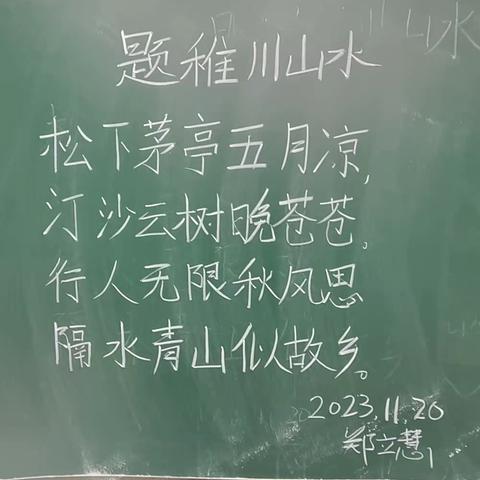 题稚川山水
松下茅亭五月凉,
汀沙云树晚苍苍。
行人无限秋风思
隔水青山似故乡。
2023.11.20
郑立慧